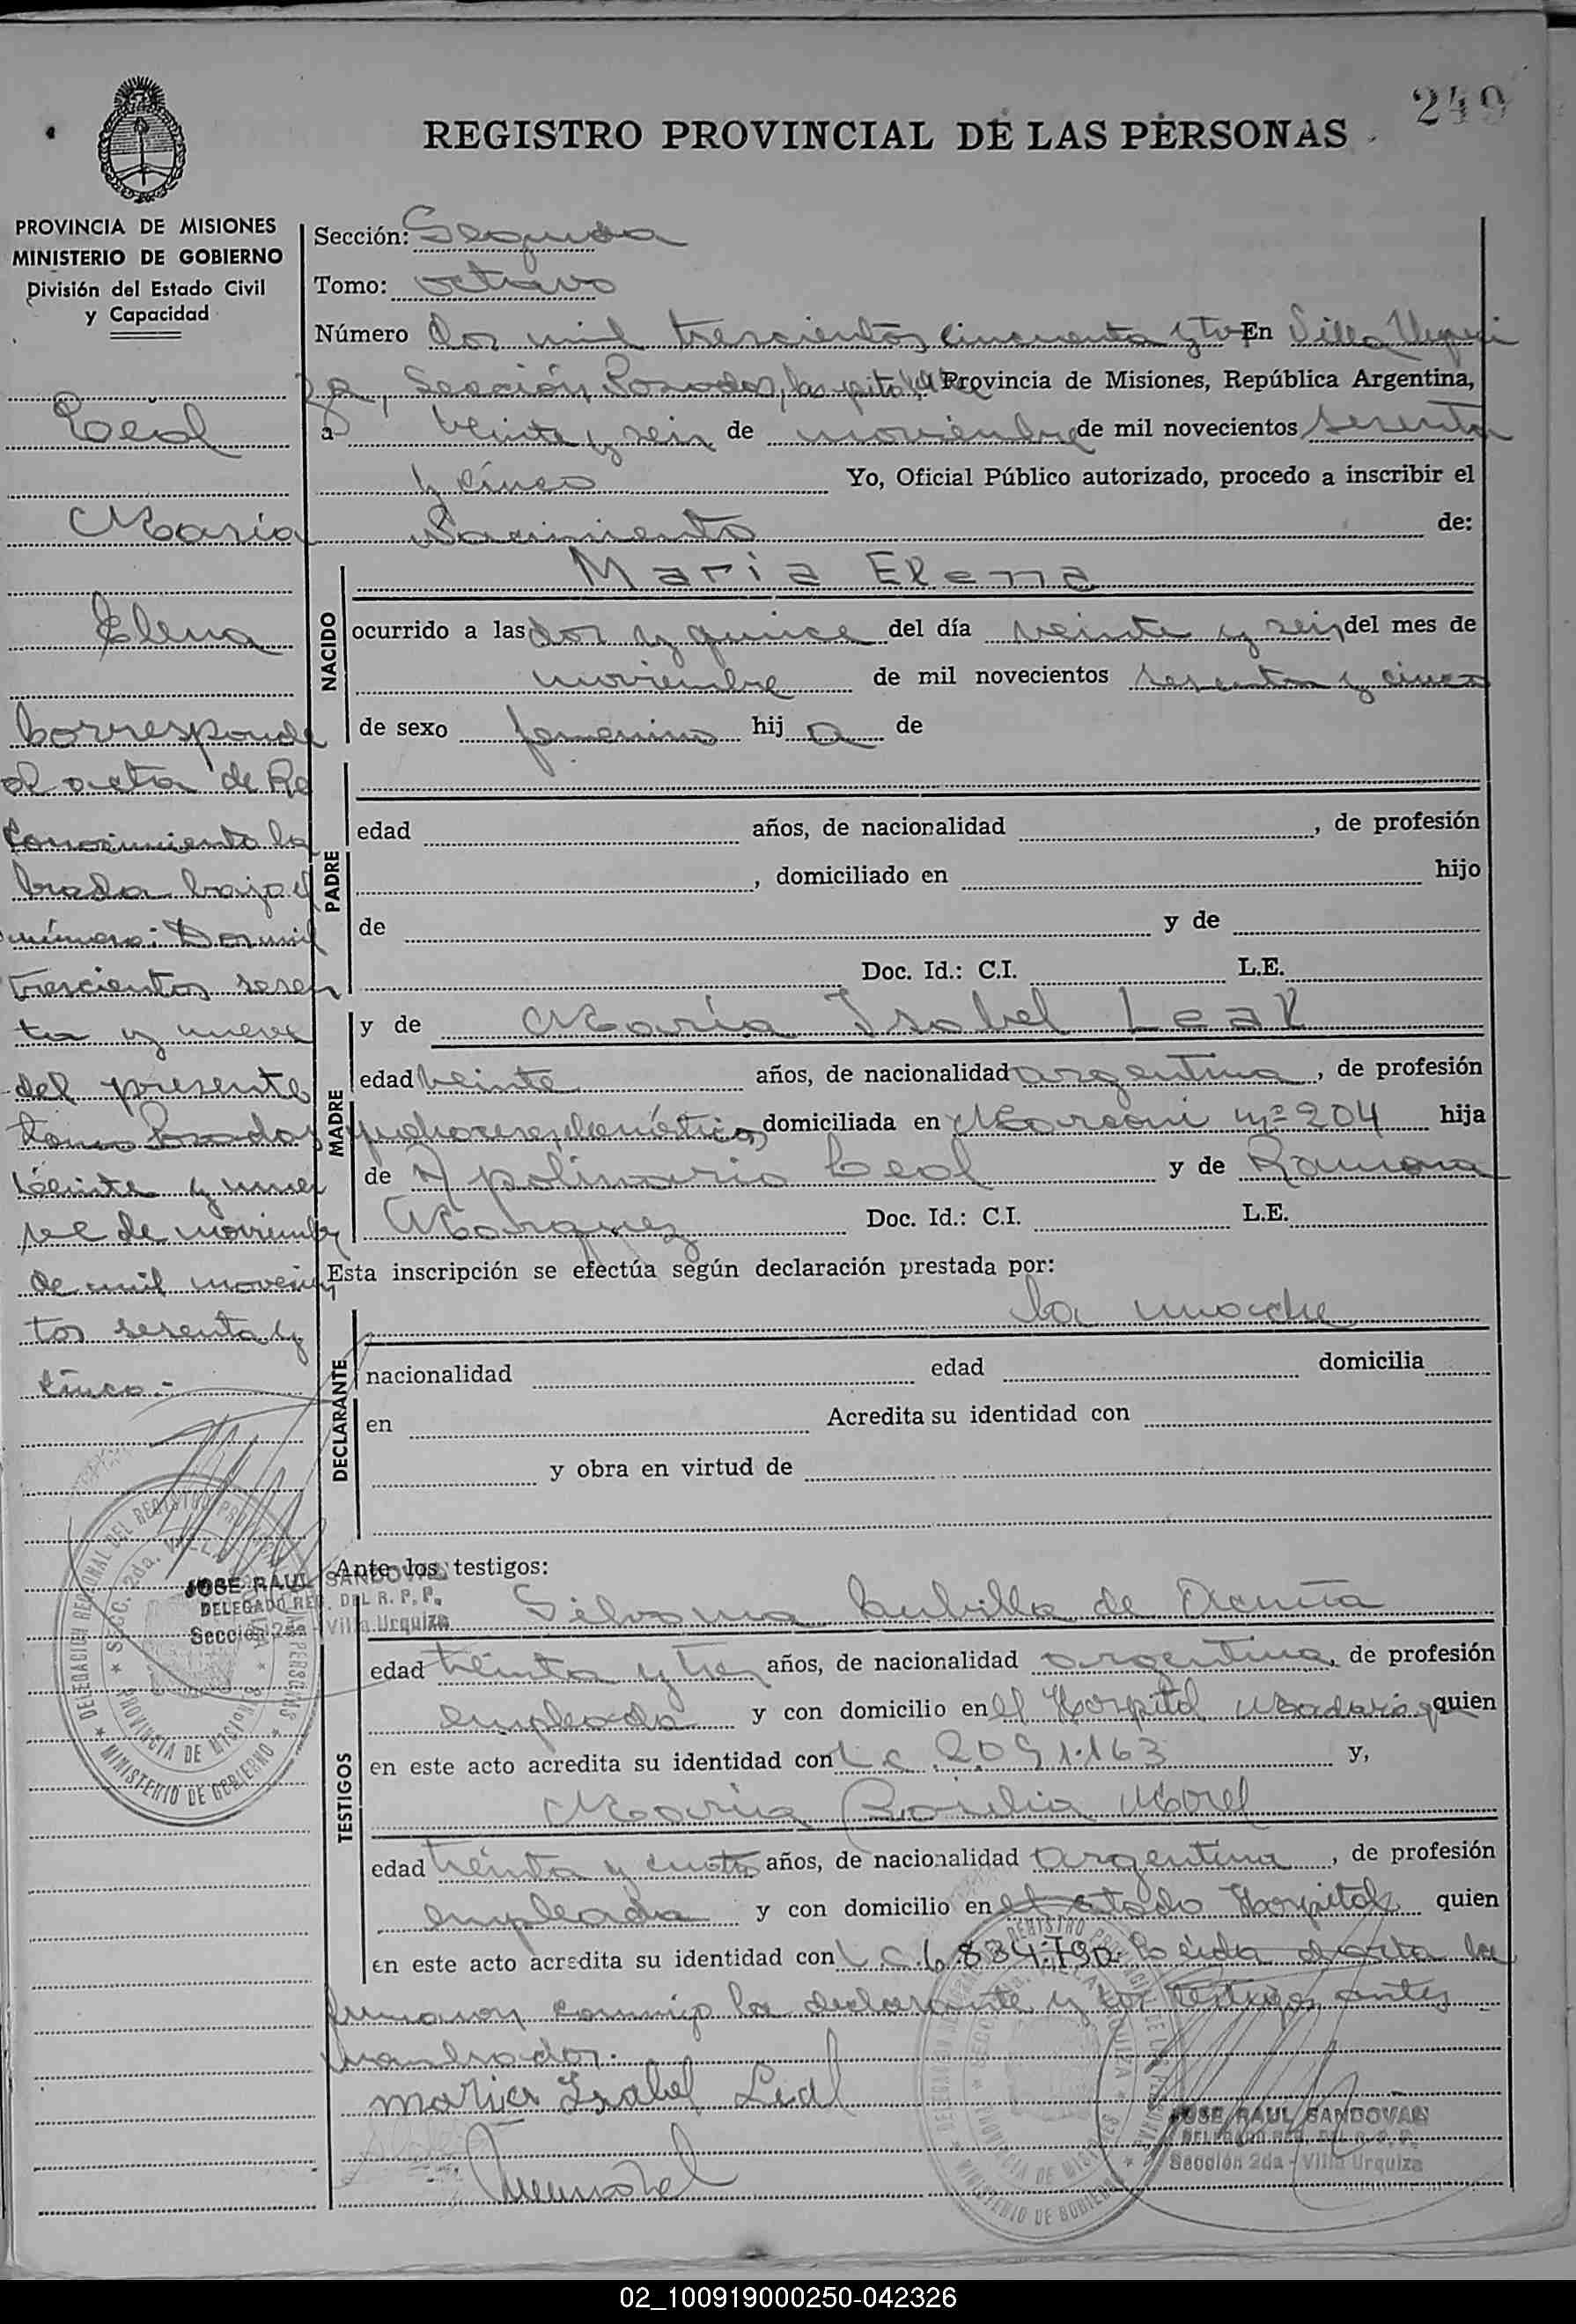 249
REGISTRO PROVINCIAL DE LAS PERSONAS
PROVINCIA DE MISIONES
MINISTERIO DE GOBIERNO
División del Estado Civil
y Capacidad
Leal
María
Elena
Corresponde
al acta de Re
conocimiento la
brada bajo el
número: Dos mil
trescientos sesen
ta y nueve
del presente
tomo Posadas
veinte y nueve
de noviembre
de mil novecien
tos sesenta y
cinco.-
JOSE RAUL SANDOVAL
DELEGADO REG. DEL R. P. P.
Sección 2da - Villa Urquiza
DELEGACION REGIONAL DEL REGISTRO PROVINCIAL DE LAS PERSONAS
SECC. 2da. VILLA URQUIZA
PROVINCIA DE MISIONES
MINISTERIO DE GOBIERNO
Sección: Segunda
Tomo: octavo
Número dos mil trescientos cincuenta y En Villa Urqui
za, Sección Posadas, Capital Provincia de Misiones, República Argentina,
a veinte y seis de noviembre de mil novecientos sesenta
y cinco Yo, Oficial Público autorizado, procedo a inscribir el
Nacimiento de:
NACIDO
Maria Elena
ocurrido a las dos y quince del día veinte y seis del mes de
noviembre de mil novecientos sesenta y cinco
de sexo femenino hij a de
PADRE
edad años, de nacionalidad , de profesión
, domiciliado en hijo
de y de
Doc. Id.: C.I. L.E.
MADRE
y de María Isabel Leal
edad veinte años, de nacionalidad argentina, de profesión
domiciliada en Marconi nº 204 hija
de Apolinario Leal y de Ramona
Marquez Doc. Id.: C.I. L.E.
Esta inscripción se efectúa según declaración prestada por:
DECLARANTE
la madre
nacionalidad edad domicilia
en Acredita su identidad con
y obra en virtud de
Ante los testigos:
TESTIGOS
Silvana Cubilla de Acuña
edad treinta y tres años, de nacionalidad argentina, de profesión
empleada y con domicilio en el Hospital Madariaga quien
en este acto acredita su identidad con L.C. 2.091.163 y,
María Morel
edad treinta y cuatro años, de nacionalidad argentina, de profesión
empleada y con domicilio en el citado Hospital quien
en este acto acredita su identidad con L.C. 6.834.790. Leida el acta la
firmaron conmigo la declarante y los testigos antes
nombrados.
Maria Isabel Leal
JOSE RAUL SANDOVAL
DELEGADO REG. DEL R. P. P.
Sección 2da - Villa Urquiza
02_100919000250-042326